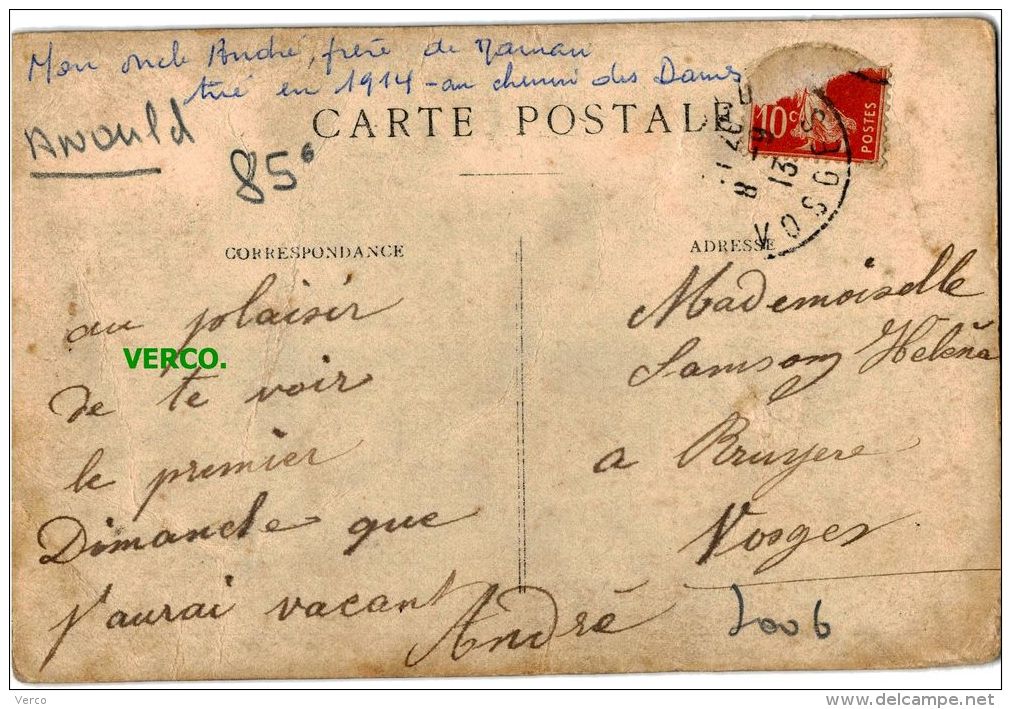 Mon oncle André, frère de Maman
tué en 1914 - au chemin des Dames
Anould
CARTE POSTALE
85°
10c
POSTES
8-9
13
VOSGES
CORRESPONDANCE
ADRESSE
au plaisir
VERCO.
de te voir
le premier
Dimanche que
j'aurai vacant
André
Mademoiselle
Samson Helèna
a Bruyere
Vosges
2006
Verco
delcampe.net